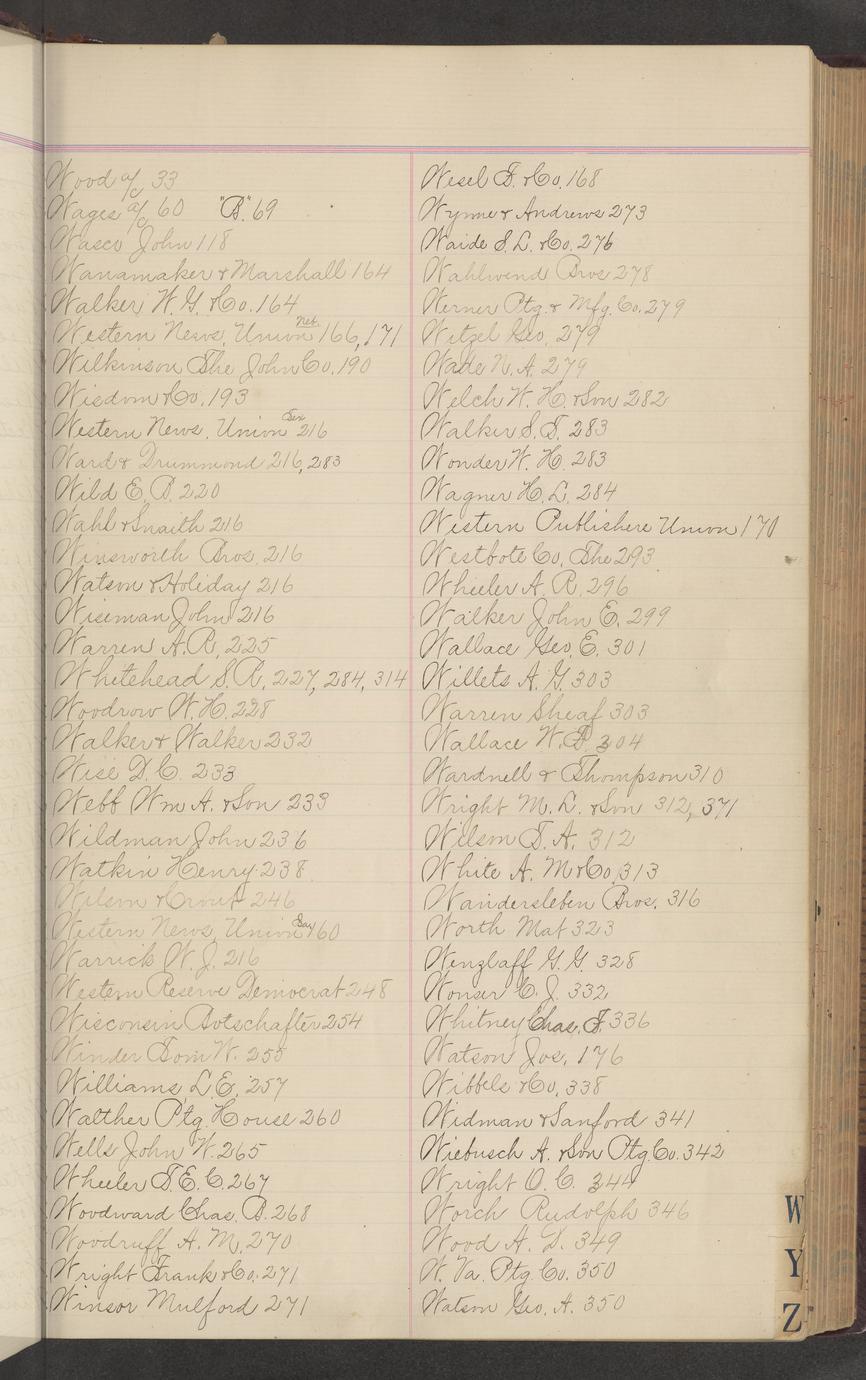 Wood a/c 33
Wages a/c 60 "B." 69
Wasco John 118
Wanamaker & Marshall 164
Walker W. G. & Co. 164
Western News. Union Neb. 166, 171
Wilkinson The John Co. 190
Wisdom & Co. 193
Western News. Union 216
Ward & Drummond 216, 283
Wild E. B. 220
Wahl & Snaith 216
Winsworth Bros. 216
Watson & Holiday 216
Wiseman John 216
Warren A. R. 225
Whitehead S. R. 227, 284, 314
Woodrow W. H. 228
Walker & Walker 232
Wise D. C. 233
Webb Wm A. & Son 233
Wildman John 236
Watkin Henry 238
Wilson & Crout 246
Western News. Union
Warrick W. J. 216
Western Reserve Democrat 248
Wisconsin Botschafter 254
Winder Tom W. 255
Williams L. E. 257
Walther Ptg House 260
Wells John W. 265
Wheeler T. E. C. 267
Woodward Chas. B. 268
Woodruff A. M. 270
Wright Frank & Co. 271
Winsor Mulford 271
Wesel F. & Co. 168
Wynne & Andrews 273
Waide S. L. & Co. 276
Wahlwend Bros 278
Werner Ptg. & Mfg. Co. 279
Witzel Geo. 279
Wade N. A. 279
Welch W. H. & Son 282
Walker S. T. 283
Wonder W. H. 283
Wagner H. L. 284
Western Publishers Union 170
Westbote Co. The 293
Wheeler A. R. 296
Walker John E. 299
Wallace Geo. E. 301
Willets A. G. 303
Warren Sheaf 303
Wallace W. B. 304
Wardnell & Thompson 310
Wright M. L. & Son 312, 371
Wilson T. A. 312
White A. M & Co. 313
Wandersleben Bros. 316
Worth Mat 323
Wenzlaff G. G. 328
Wonser C. J. 332
Whitney Chas. F. 336
Watson Jos. 176
Wibbels & Co. 338
Widman & Sanford 341
Wiebusch A. & Son Ptg. Co. 342
Wright O. C. 344
Worch Rudolph 346
Wood A. D. 349
W. Va. Ptg. Co. 350
Watson Geo. A. 350
W
Y
Z